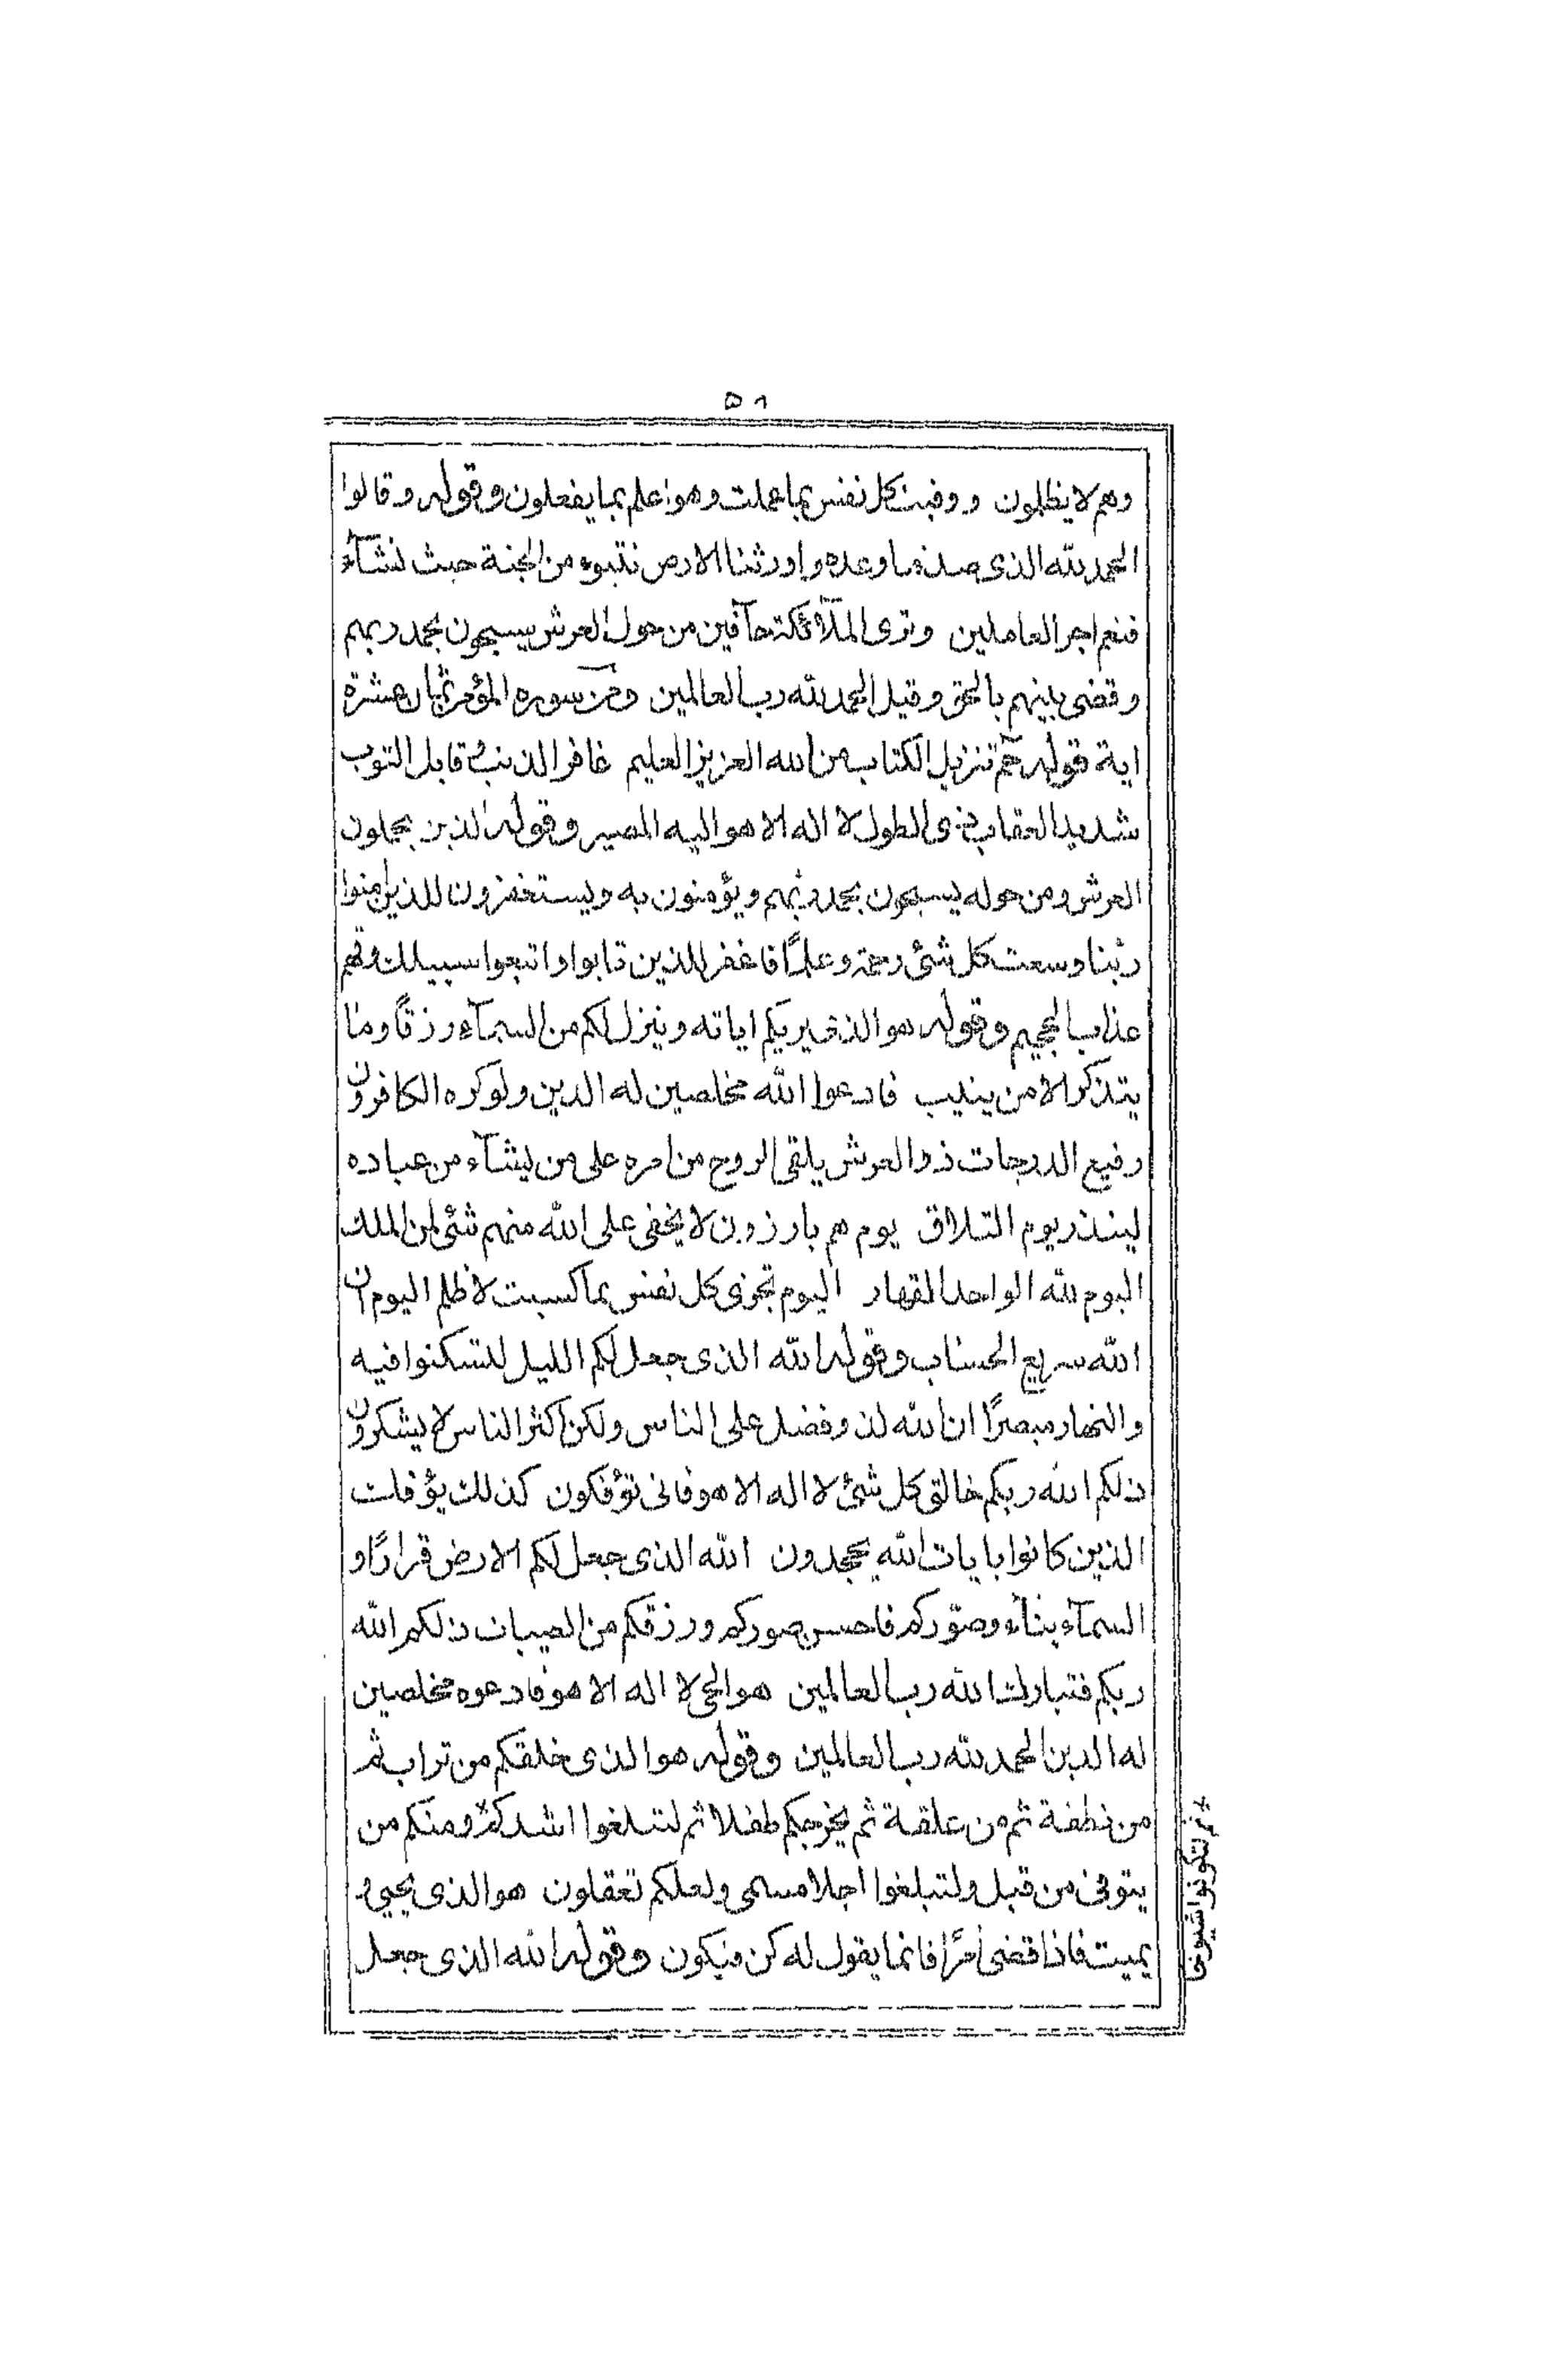 ٥٨
وهم لا يظلمون ووفيت كل نفس بما عملت وهو اعلم بما يفعلون وقوله وقالوا
الحمد لله الذى صدقنا وعده واورثنا الارض نتبوء من الجنة حيث نشآء
فنعم اجر العاملين وترى الملآئكة حآفين من حول العرش يسبحون بحمد ربهم
وقضى بينهم بالحق وقيل الحمد لله رب العالمين ومن سوره المؤمن ثمان عشرة
اية قوله حم تنزيل الكتاب من الله العزيز العليم غافر الذنب وقابل التوب
شديد العقاب ذى الطول لا اله الا هو اليه المصير وقوله الذين يحملون
العرش ومن حوله يسبحون بحمد ربهم ويؤمنون به ويستغفرون للذين امنوا
ربنا وسعت كل شئ رحمة وعلمًا فاغفر للذين تابوا واتبعوا سبيلك وقهم
عذاب الجحيم وقوله هو الذى يريكم اياته وينزل لكم من السمآء رزقًا وما
يتذكر الا من ينيب فادعوا الله مخلصين له الدين ولو كره الكافرون
رفيع الدرجات ذو العرش يلقى الروح من امره على من يشآء من عباده
لينذر يوم التلاق يوم هم بارزون لا يخفى على الله منهم شئ لمن الملك
اليوم لله الواحد القهار اليوم تجزى كل نفس بما كسبت لا ظلم اليوم ان
الله سريع الحساب وقوله الله الذى جعل لكم الليل لتسكنوا فيه
والنهار مبصرًا ان الله لذو فضل على الناس ولكن اكثر الناس لا يشكرون
ذلكم الله ربكم خالق كل شئ لا اله الا هو فانى تؤفكون كذلك يؤفك
الذين كانوا بايات الله يجحدون الله الذى جعل لكم الارض قرارًا و
السمآء بنآء وصوّركم فاحسن صوركم ورزقكم من الطيبات ذلكم الله
ربكم فتبارك الله رب العالمين هو الحى لا اله الا هو فادعوه مخلصين
له الدين الحمد لله رب العالمين وقوله هو الذى خلقكم من تراب ثم
من نطفة ثم من علقة ثم يخرجكم طفلا ثم لتبلغوا اشدكم ومنكم من
يتوفى من قبل ولتبلغوا اجلا مسمى ولعلكم تعقلون هو الذى يحيى و
يميت فاذا قضى امرًا فانما يقول له كن فيكون وقوله الله الذى جعل
ثم لتكونوا شيوخا